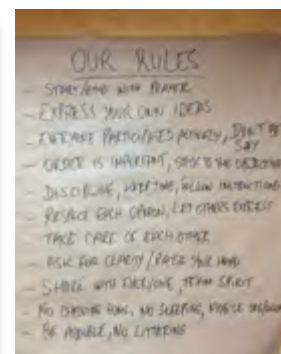 OUR RULES
- START/END WITH PRAYER
- EXPRESS YOUR OWN IDEAS
- EVERYONE PARTICIPATES ACTIVELY, DON'T BE
SAY
- ORDER IS IMPORTANT, STICK TO THE OBJECTIVE
- DISCIPLINE, KEEP TIME, FOLLOW INSTRUCTIONS
- RESPECT EACH OPINION, LET OTHERS EXPRESS
- TAKE CARE OF EACH OTHER
- ASK FOR CLARITY / RAISE YOUR HAND
- SHARE WITH EVERYONE, TEAM SPIRIT
- NO CHEWING GUM, NO SLEEPING, MOBILE
- BE AUDIBLE, NO LITTERING